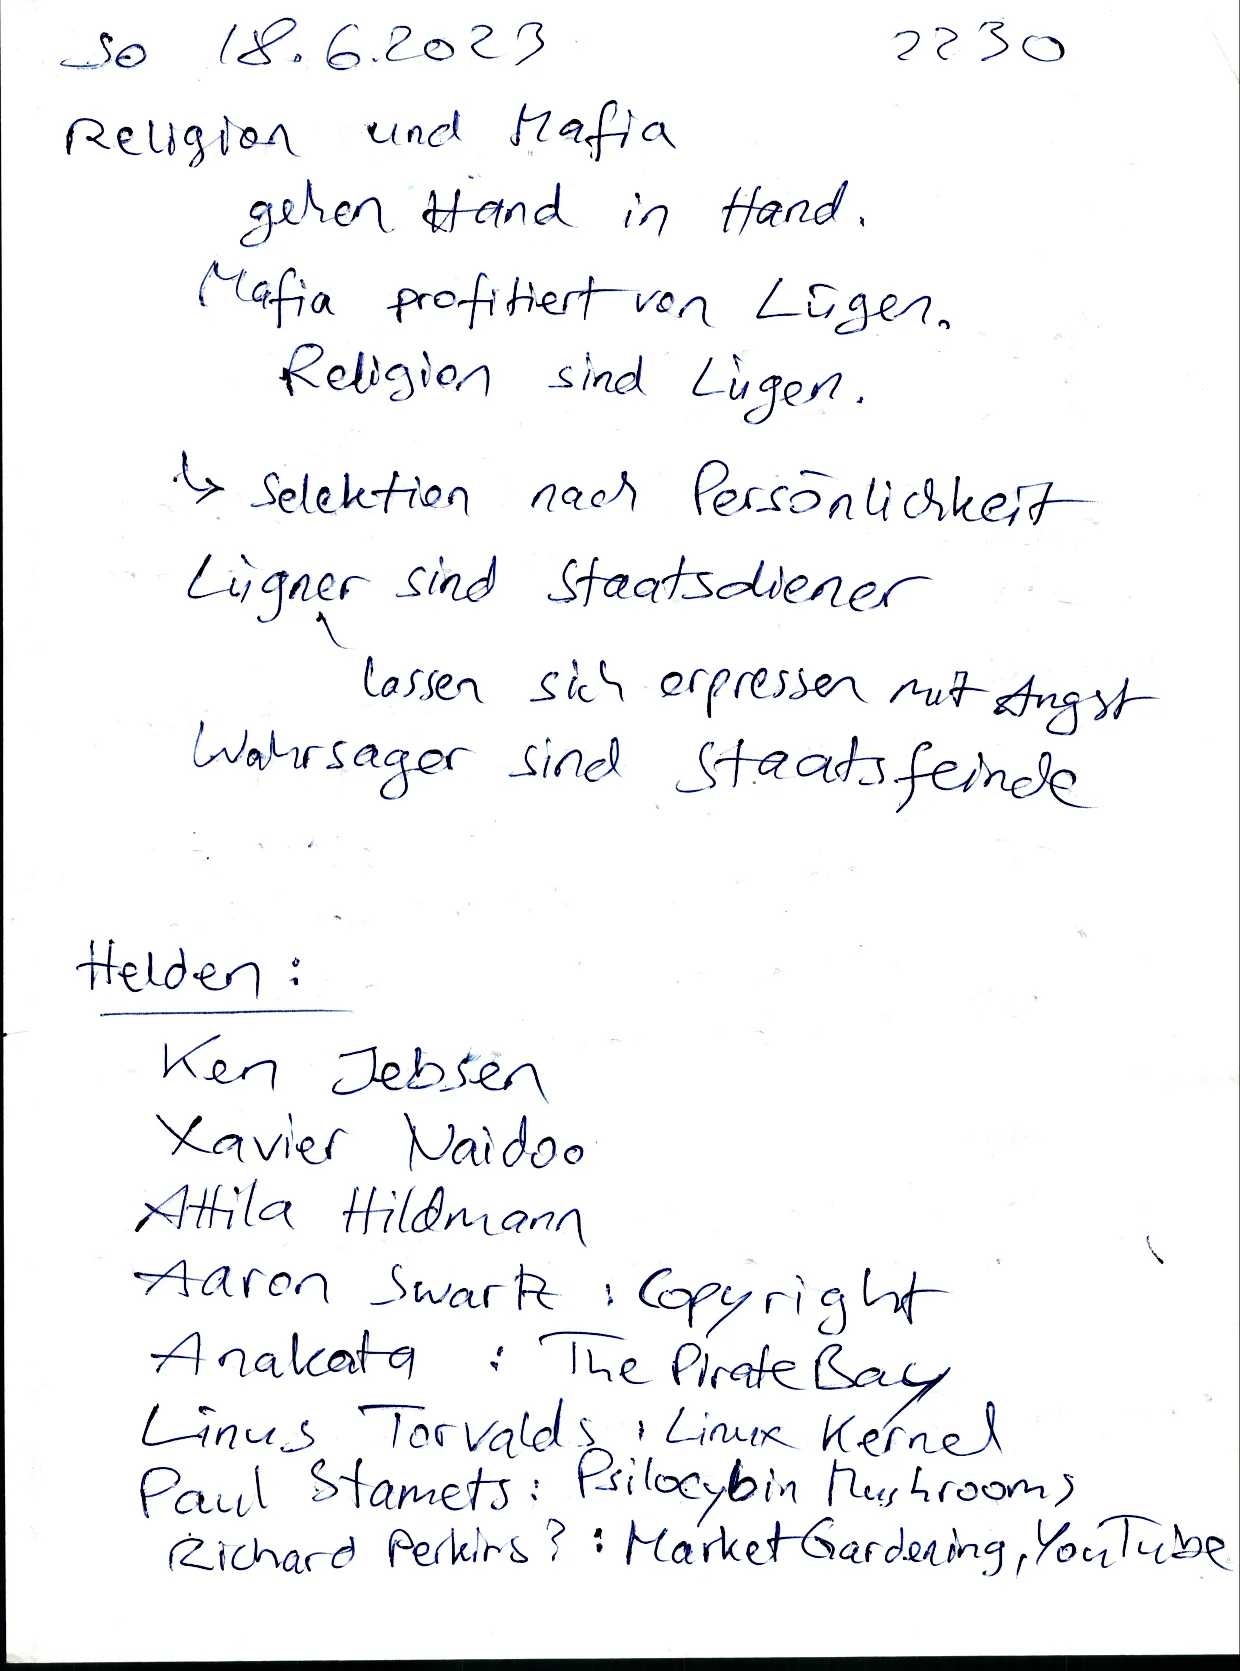 So 18.6.2023 2230
Religion und Mafia
gehen Hand in Hand.
Mafia profitiert von Lügen.
Religion sind Lügen.
↳ Selektion nach Persönlichkeit
Lügner sind Staatsdiener
lassen sich erpressen mit Angst
Wahrsager sind Staatsfeinde
Helden:
Ken Jebsen
Xavier Naidoo
Attila Hildmann
Aaron Swartz : Copyright
Anakata : The Pirate Bay
Linus Torvalds : Linux Kernel
Paul Stamets : Psilocybin Mushrooms
Richard Perkins? : Market Gardening, YouTube